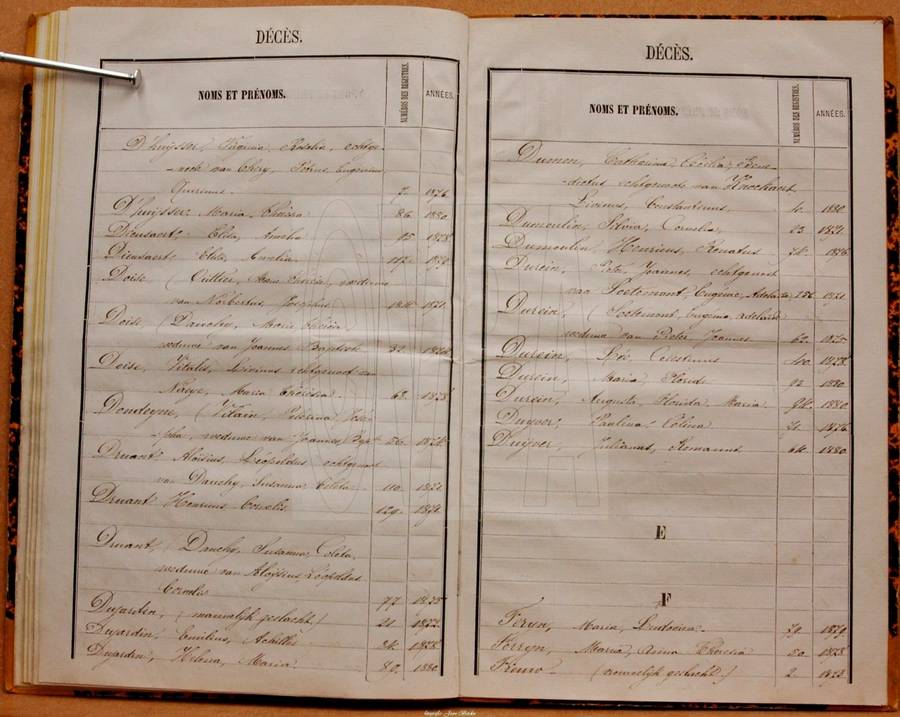 DÉCÈS.
NOMS ET PRÉNOMS. NUMÉROS DES REGISTRES. ANNÉES.
D'huysser, Virginia, Rosalia, echtge-
-noote van Eugenius
Quirinus. 2. 1876
D'huysser, Maria, Theresia 86. 1880
Dieusaert, Elisa, Amelia 95. 1878
Dieusaert, Elisa, Emelia 112. 1879
Doise, weduwe
van Norbertus, Josephus 1871
Doise, (Dauchy, Maria, Theresia
weduwe van Joannes, Baptiste
Doise, Vitalis, Livinius echtgenoot van
Maria Theresia. 68. 1878
Jose-
-pha, weduwe van Joannes, Bapt
Druant Aloïsius, Léopoldus echtgenoot
van Dauchy, Susanna, Coleta. 110. 1871
Druant Henricus Cornelis 129. 1871
Druant, (Dauchy, Susanna, Coleta,
weduwe van Aloïsius, Léopoldus
Cornelis 77. 1875
Dujardin, (mannelijk geslacht) 21. 1872
Dujardin, Emilius, Achilles 24. 1878
Dujardin, Helena, Maria 89. 1880
DÉCÈS.
NOMS ET PRÉNOMS. NUMÉROS DES REGISTRES. ANNÉES.
Dumon, Catharina Cecilia, Bene-
-dictus echtgenoote van Knockaert
Livinus, Constantinus. 10. 1880
Dumoulin, Silvia, Cornelia, 23. 1871
Dumoulin, Henricus, Renatus 1876
Durein, Petr. Joannes, echtgenoot
van Soetemont, Eugenie, Adelaide 1871
Durein, (Soetemont, Eugenia, adelaide
weduwe van Pieter, Joannes 62. 1875
Durein, Celestinus 40. 1878
Durein, Maria, Floride 92. 1880
Durein, Augusta, Florida, Maria. 94. 1880
Duyver, Paulina, Celina 1876
Duyver, Julianus, Romanus 64. 1880
E
F
Feryn, Maria, Ludovica. 79. 1879
Ferryn, Maria, Anna, Theresia 50. 1878
(mannelijk geslacht.) 2. 1873